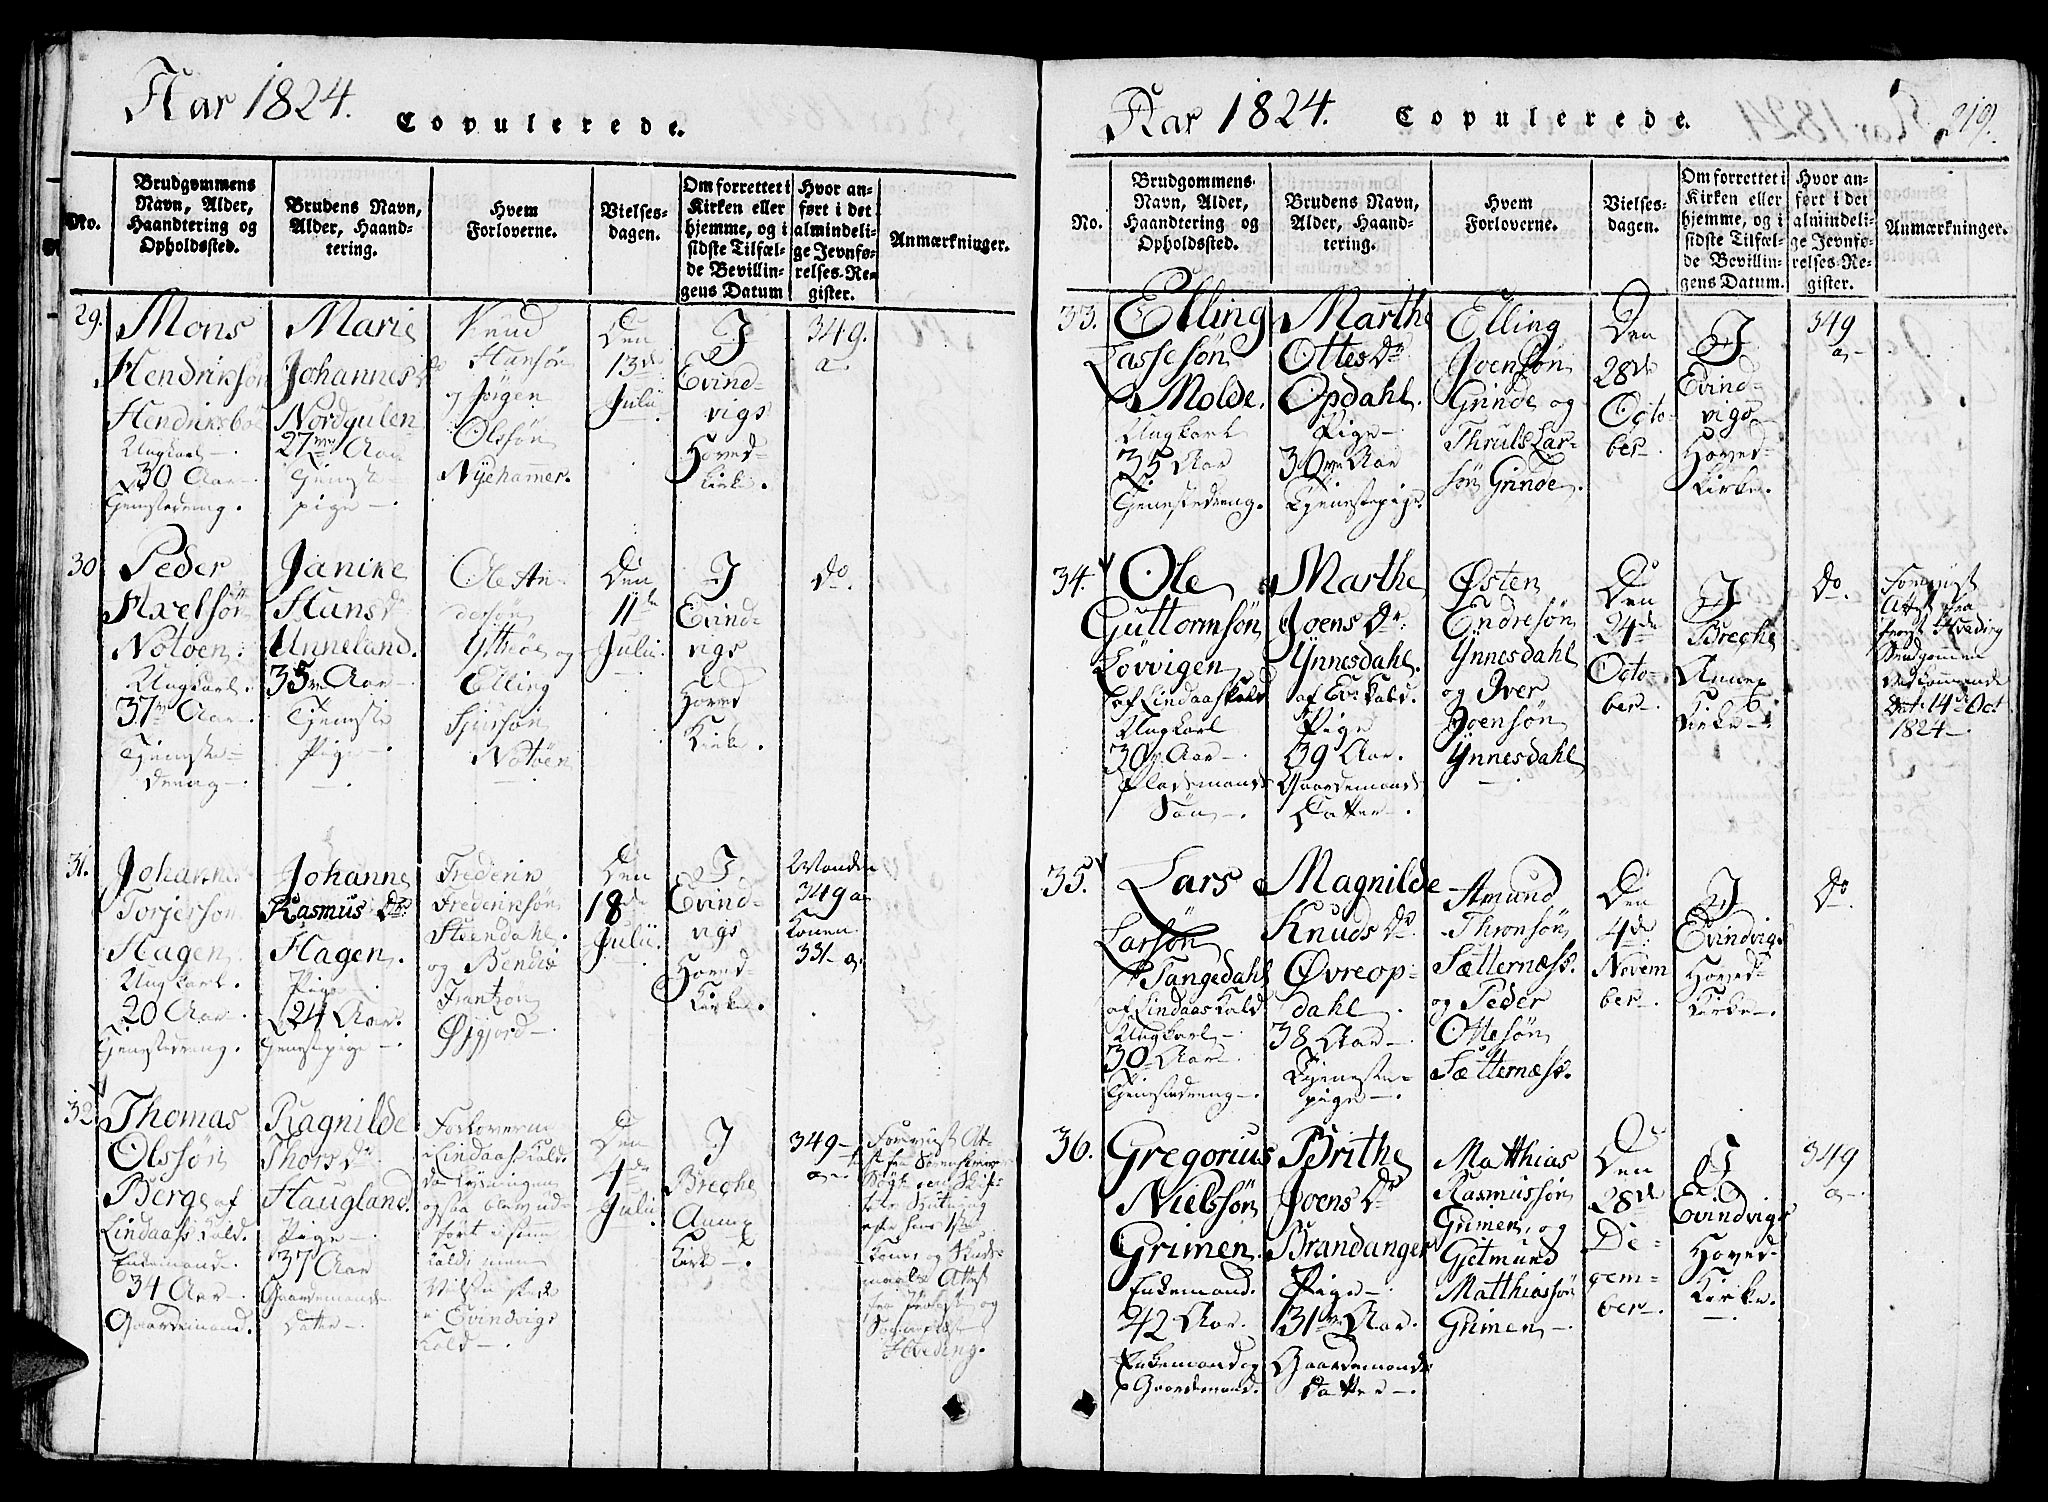 Aar 1824.
Copulerede.
No.
Brudgommens
Navn, Alder,
Haandtering og
Opholdssted.
Brudens Navn,
Alder, Haand-
tering.
Hvem
Forloverne.
Vielses-
dagen.
Om forrettet i
Kirken eller
hjemme, og i
sidste Tilfæl-
de Bevillin-
gens Datum
Hvor an-
ført i det
almindeli-
ge Jevnfø-
relses-Re-
gister.
Anmærkninger.
29.
Mons
Hendriksøn
Hendriksboe
Ungkarl
30 Aar
Tjenstedreng.
Marie
Johannes Dr
Nordgulen
27 Aar
Tjenste-
pige
Knud
Hansøn
og Jørgen
Olssøn
Nyehammer.
Den
13de
Julii
I
Evind-
vigs
Hoved-
kirke.
349.
a.
30
Peder
Axelsøn
Notøen
Ungkarl.
37 Aar
Tjenste-
dreng
Janike
Hans Dr
Unneland.
35 Aar
Tjenste
Pige
Ole An-
dersøn
Ytrøe og
Elling
Sjursøn
Notøen
Den
11te
Julii
I
Evind-
vigs
Hoved
Kirke.
Do.
31.
Johannes
Torjersøn
Hagen
Ungkarl.
20 Aar
Tjenstedreng.
Johanne
Rasmus Dr
Hagen.
Pige
24 Aar.
Tjenstepige
Frederik
Frederiksøn
Steendahl.
og Bendix
Frantzøn
Øygjord
Den
18de
Julii
I
Evind-
vigs
Hoved-
Kirke.
Manden
349 a
Konen
331 a.
32.
Thomas
Olssøn
Berge af
Lindaas Kald.
Enkemand.
34 Aar
Gaardemand.
Ragnilde
Thors Dr
Haugland.
Pige
37 Aar
Gaardemands
datter
Forloverne
i Lindaas Kald.
da Lysningen
ogsaa blev ud-
ført i samme
Kald, men
Vielsen skede
i Evindvigs
Kald
Den
4de
Julii
I
Breche
Annex
Kirke
349
a
Forevist At-
Konen og
Attest
fra Provst og
Hveding.
Aar 1824.
Copulerede.
219.
No.
Brudgommens
Navn, Alder,
Haandtering og
Opholdsted.
Brudens Navn,
Alder, Haand-
tering.
Hvem
Forloverne.
Vielses-
dagen.
Om forrettet i
Kirken eller
hjemme, og i
sidste Tilfæl-
de Bevillin-
gens Datum.
Hvor an-
ført i det
almindeli-
ge Jevnfø-
relses-Re-
gister.
Anmærkninger.
33.
Elling
Lassesøn
Molde.
Ungkarl
35 Aar
Tjenestedreng.
Marthe
Ottes Dr
Opdahl.
Pige
30 Aar
Tjenestepige.
Elling
Joensøn
Grinde og
Thruls Lar-
søn Grinde.
Den
28de
Octo-
ber
I
Evind-
vigs
Hoved-
Kirke.
349
a
34.
Ole
Guttormsøn
Løvvigen
af Lindaas Kald
Ungkarl
30 Aar
Pladsmands
Søn
Marthe
Joens Dr
Ynnesdahl.
af Ev: Kald.
Pige
39 Aar.
Gaardemands
Datter
Østen
Endresøn
Ynnesdahl
og Iver
Joensøn
Ynnesdahl
Den
24de
Octo-
ber
I
Breche
Annex
Kirke
Do.
Forevist
Attest fra
Provst Hveding
Brudgommen
vedkommende
Dat. 14de Oct
1824
35.
Lars
Larsøn
Tangedahl
af Lindaas Kald
Ungkarl
30 Aar
Tjenstedreng
Magnilde
Knuds Dr
Øvreop-
dahl
38 Aar
Tjeneste-
pige
Amund
Thronsøn
Sætternæss.
og Peder
Ottesøn
Sætternæss.
Den
4de
Novem
ber
I
Evindvigs
Hoved-
Kirke
Do
36.
Gregorius
Nielssøn
Grimen.
Enkemand.
42 Aar.
Enkemand og
Gaardemand.
Brithe
Joens Dr
Brandanger
Pige
31 Aar.
Gaardemands
datter
Matthias
Rasmussøn
Grimen, og
Gjetmund
Matthiassøn
Grimen
Den
28de
De-
cem-
ber
I
Evindvigs
Hoved-
Kirke.
349
a